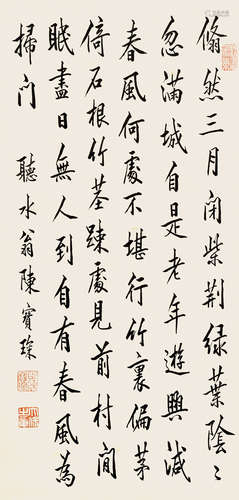 翛然三月閉柴荆綠葉陰〻
忽滿城自是老年遊興減
春風何處不堪行竹裏偏茅
倚石根竹莖踈處見前村閒
眠盡日無人到自有春風為
掃門
聽水翁陳寶琛